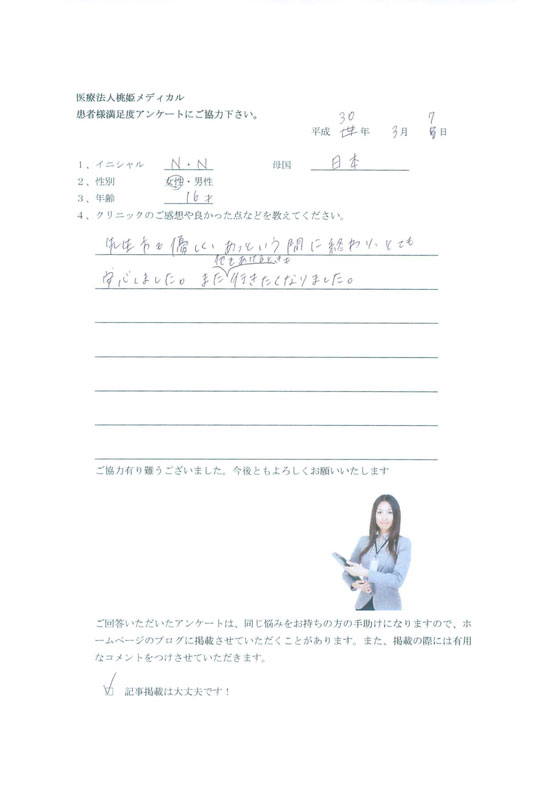 医療法人桃姫メディカル
患者様満足度アンケートにご協力下さい。
平成 30 年 3月 7日
1、イニシャル N・N 母国 日本
2、性別 女性・男性
3、年齢 16才
4、クリニックのご感想や良かった点などを教えてください。
先生方も優しく、あっという間に終わり、とても
他もあけるときも
安心しました。また行きたくなりました。
ご協力有り難うございました。今後ともよろしくお願いいたします
ご回答いただいたアンケートは、同じ悩みをお持ちの方の手助けになりますので、ホ
ームページのブログに掲載させていただくことがあります。また、掲載の際には有用
なコメントをつけさせていただきます。
記事掲載は大丈夫です！